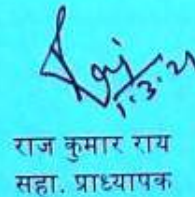 Raj
1.3.21
राज कुमार राय
सहा. प्राध्यापक